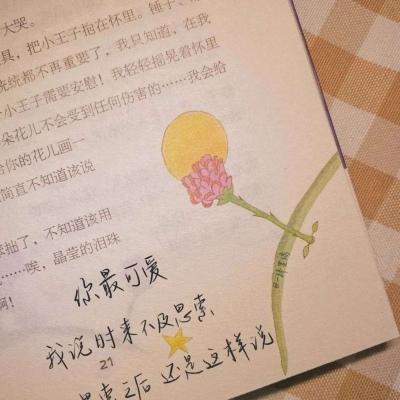 大哭。
具，把小王子抱在怀里。锤子、
统统都不再重要了，我只知道，在我
小王子需要安慰！我轻轻摇晃着怀里
朵花儿不会受到任何伤害的……我会给
给你的花儿画一
简直不知道该说
抽了，不知道该用
……唉，晶莹的泪珠
啊！
你最可爱
我说时来不及思索
21
思索之后 还是这样说